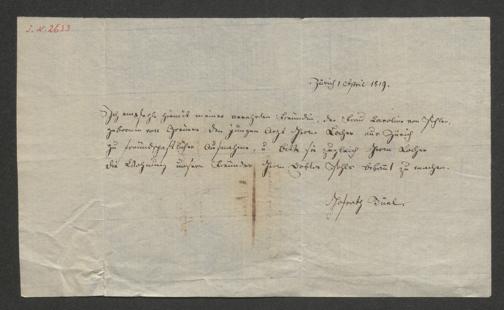 I. N. 2633
Zürich 1 April 1819.
Ich empfehle hiemit meiner verehrten Freundin, der Frau Caroline von
gebornen von Greiner den jungen Arzt Herrn Locher aus Zürich
zu freundschaftlicher Aufnahme, u. bitte sie zugleich Herrn Locher
die Wohnung unsers Freundes Herrn bekannt zu machen.
Hofrath